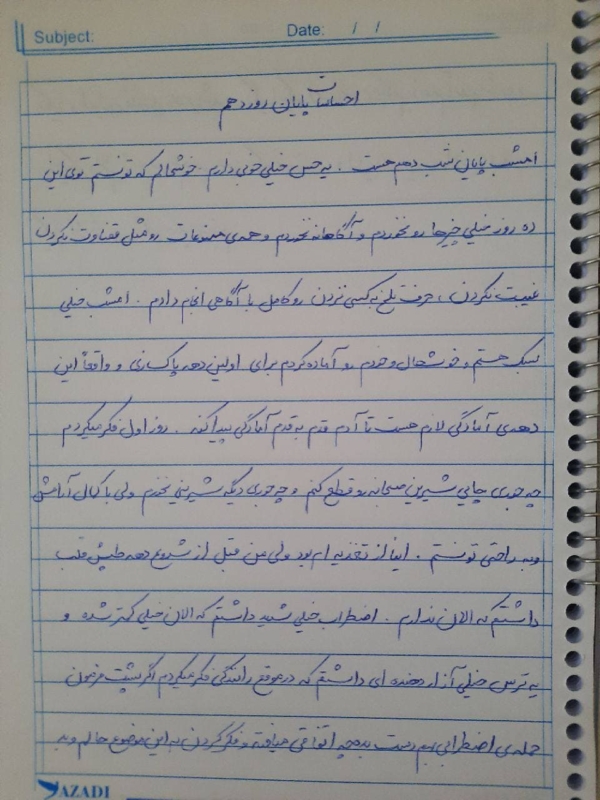 Subject:
Date: / /
احساسات پایان روز دهم
امشب پایانی شب دهم هست . یه حس خیلی خوبی دارم . خوشحالم که تونستم توی این
ده روز خیلی چیزها رو نخوردم و آگاهانه نخوردم و همه‌ی ممنوعات رو مثل قضاوت نکردن
غیبت نکردن ، حرف تلخ به کسی نزدن رو کامل با آگاهی انجام دادم . امشب خیلی
سبک هستم و خوشحال و خودم رو آماده کردم برای اولین دهه پاکسازی و واقعاً این
دهه‌ی آمادگی لازم هست تا آدم قدم به قدم آمادگی پیدا کنه . روز اول فکر میکردم
چه جوری چایی شیرین صبحانه رو قطع کنم و چه جوری دیگه شیرینی نخورم ولی با کمال آرامش
و به راحتی تونستم . اینا از تغذیه ام بود ولی من قبل از شروع دهه طپش قلب
داشتم که الان ندارم . اضطراب خیلی شدید داشتم که الان خیلی کمتر شده و
یه ترس خیلی آزار دهنده ای داشتم که در موقع رانندگی فکر میکردم اگر پشت فرمون
حمله‌ی اضطرابی بهم دست بده چه اتفاقی میافته و فکر کردن به این موضوع حالم و بد
AZADI